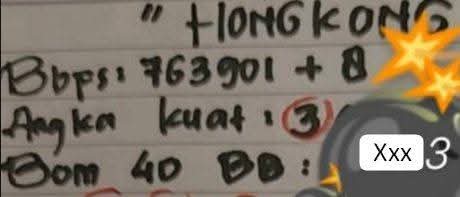 " HONGKONG
Bbps: 763901 + 8
Angka kuat: 3
Bom 40 BB: Xxx 3